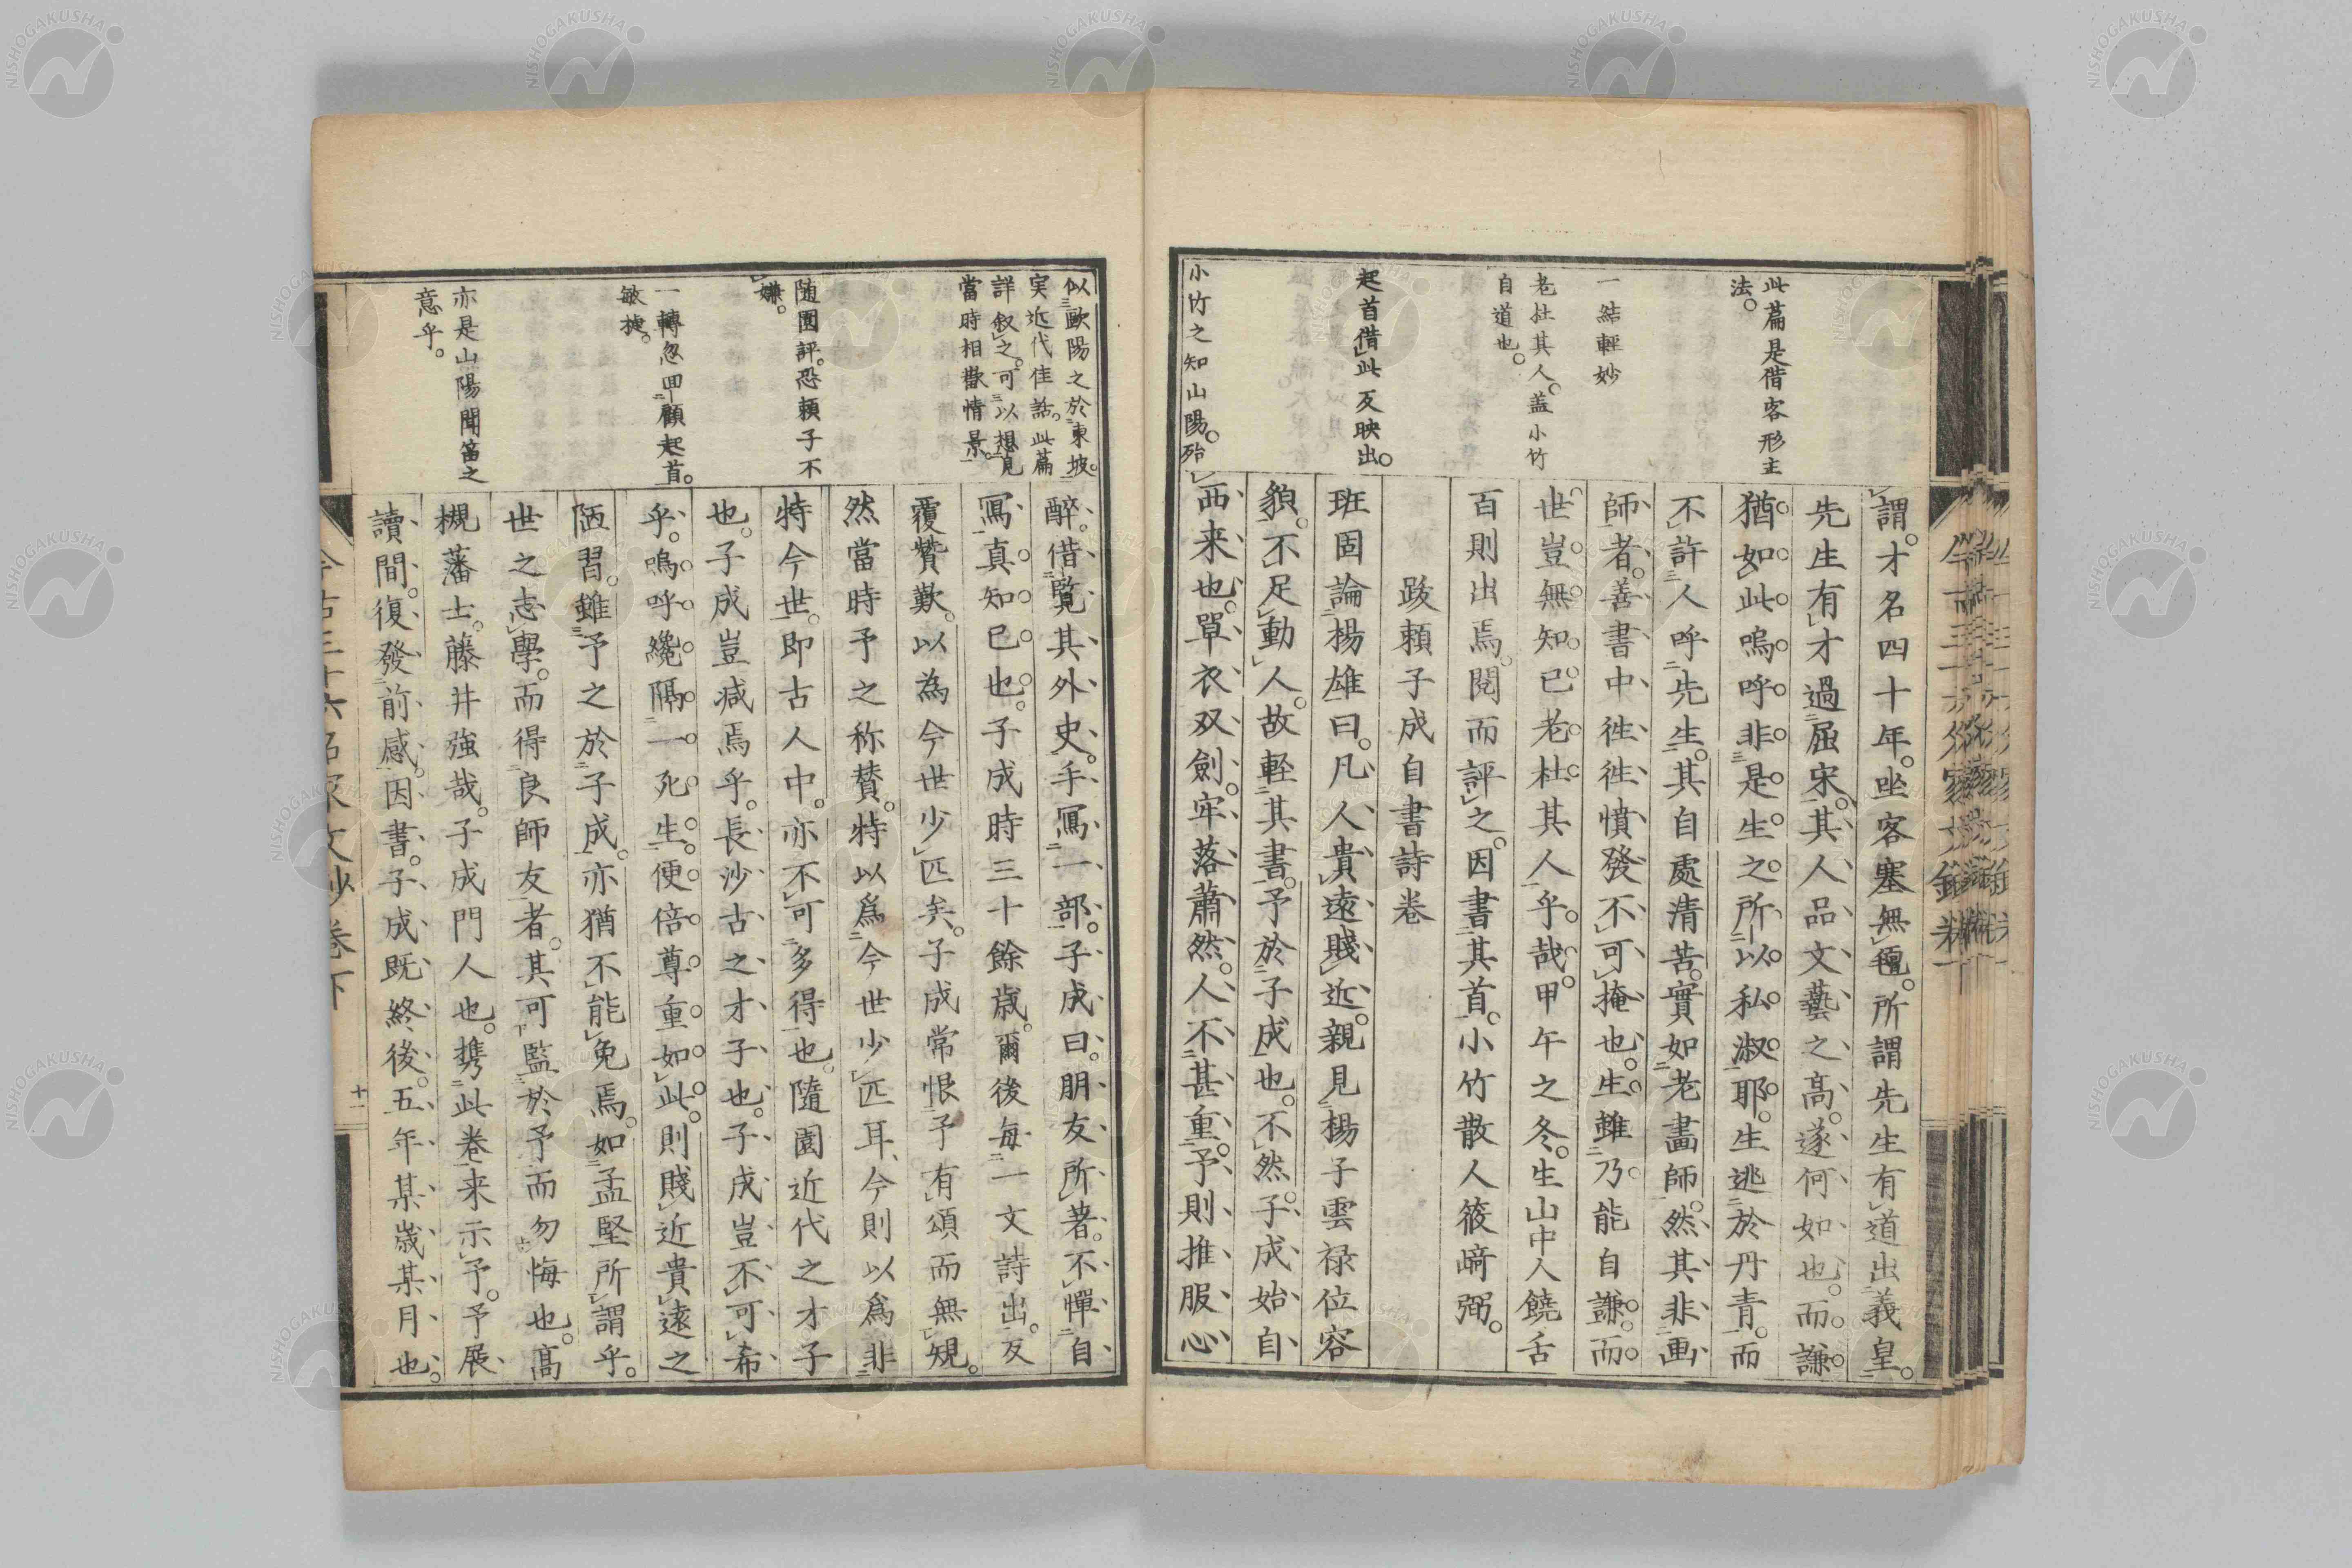 此篇是借客形主
法。
一結輕妙
老杜其人。盖小竹
自道也。
起首借此反映出。
小竹之知山陽。殆
謂。才名四十年。坐客塞無氊。所謂先生有道出義皇。
先生有才過屈宋。其人品文藝之高。遂何如也。而謙
猶如此。嗚呼非是生之所以私淑耶。生逃於丹青。而
不許人呼先生。其自處清苦。實如老畫師。然其非画
師者。善書中徃徃憤發不可掩也。生雖乃能自謙。而
世豈無知已老杜其人乎哉。甲午之冬。生山中人饒舌
百則出焉。閲而評之。因書其首。小竹散人筱﨑弼。
跋頼子成自書詩卷
班固論楊雄曰。凡人貴遠賤近。親見楊子雲禄位容
貌。不足動人。故軽其書。予於子成也。不然。子成始自
西来也。單衣双劍。牢落蕭然。人不甚重。予則推服心
似歐陽之於東坡。
実近代佳話。此篇
詳叙之。可以想見
當時相歡情景。
随園評。恐頼子不
嫌。
一轉忽囬顧起首。
敏捷。
亦是山陽聞笛之
意乎。
醉。借覧其外史。手寫一部。子成曰。朋友所著。不憚自
寫。真知已也。子成時三十餘歳。爾後毎一文詩出。反
覆贊歎。以為今世少匹矣。子成常恨予有頌而無規。
然當時予之称賛。特以爲今世少匹耳、今則以爲非
特今世。即古人中。亦不可多得也。隨園近代之才子
也。子成豈減焉乎。長沙古之才子也。子成豈不可希
乎。嗚呼纔隔一死生。便倍尊重如此。則賤近貴遠之
陋習。雖予之於子成。亦猶不能免焉。如孟堅所謂乎。
世之志學。而得良師友者。其可監於予而勿悔也。髙
槻藩士。藤井強哉。子成門人也。携此卷来示予。予展
讀間。復發前感。因書。子成既終後。五年某歳某月也。
今古三十六名家文抄卷下
十一